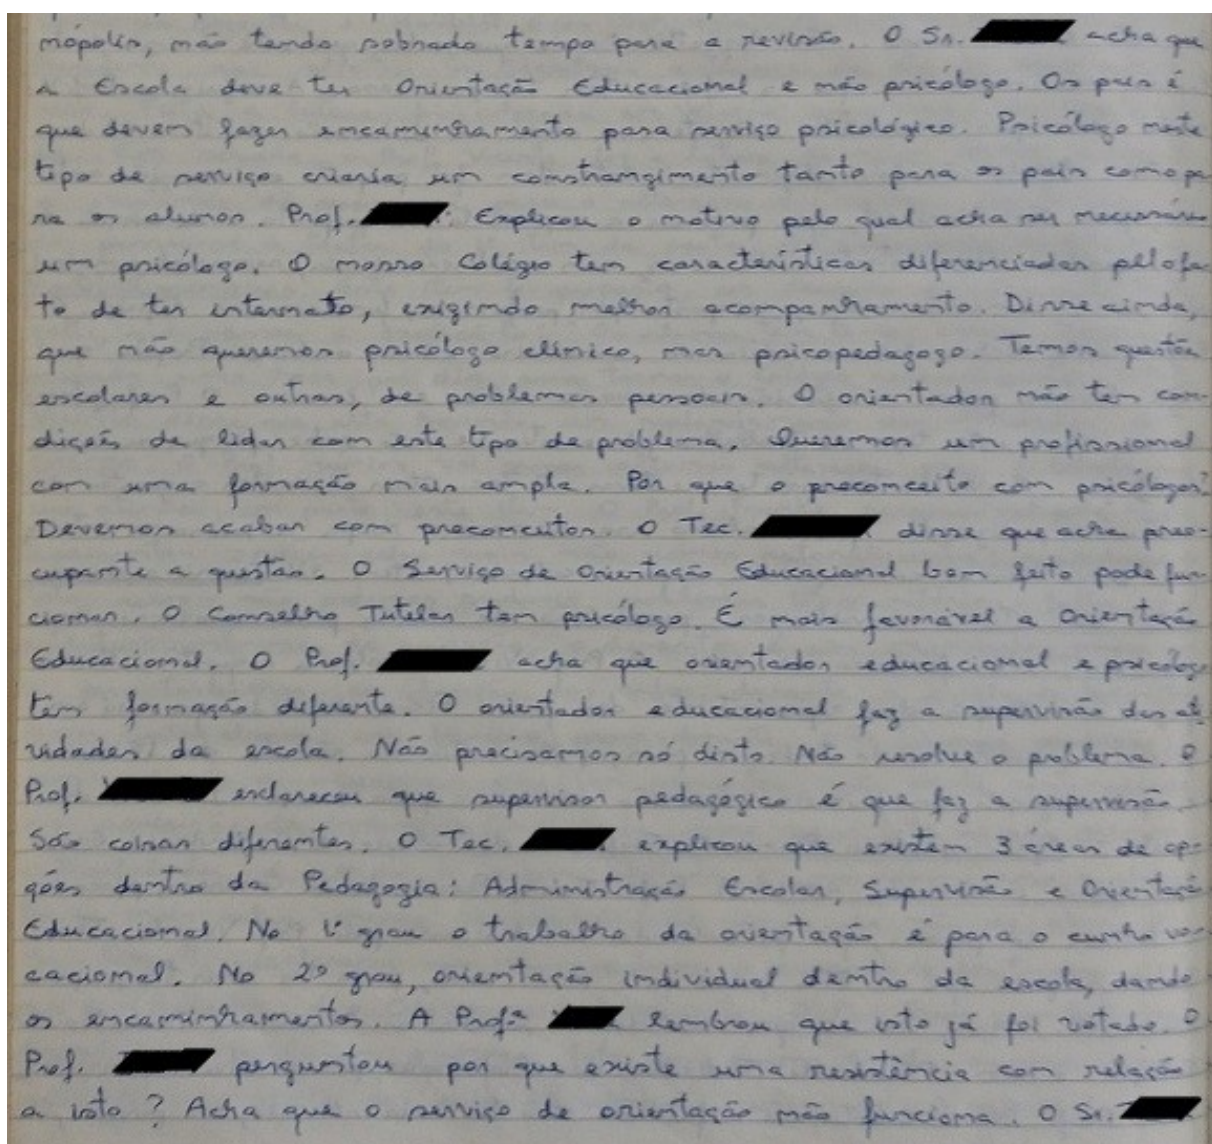 nópolis, não tendo sobrado tempo para a revisão. O Sr. acha que
a Escola deve ter Orientação Educacional e não psicólogo. Os pais é
que devem fazer encaminhamento para serviço psicológico. Psicólogo neste
tipo de serviço criaria um constrangimento tanto para os pais como pa-
ra os alunos. Prof. : Explicou o motivo pelo qual acha ser necessário
um psicólogo. O nosso Colégio tem características diferenciadas pelo fa-
to de ter internato, exigindo melhor acompanhamento. Disse ainda,
que não queremos psicólogo clínico, mas psicopedagogo. Temos questões
escolares e outras, de problemas pessoais. O orientador não tem con-
dições de lidar com este tipo de problema. Queremos um profissional
com uma formação mais ampla. Por que o preconceito com psicólogos?
Devemos acabar com preconceitos. O Tec. disse que acha preo-
cupante a questão. O Serviço de Orientação Educacional bem feito pode fun-
cionar. O Conselho Tutelar tem psicólogo. É mais favorável a Orientação
Educacional. O Prof. acha que orientador educacional e psicólogo
têm formação diferente. O orientador educacional faz a supervisão das ati
vidades da escola. Não precisamos só disto. Não resolve o problema. O
Prof. esclareceu que supervisor pedagógico é que faz a supervisão.
São coisas diferentes. O Tec. explicou que existem 3 áreas de op-
ções dentro da Pedagogia: Administração Escolar, Supervisão e Orientação
Educacional. No 1º grau o trabalho da orientação é para o cunho vo-
cacional. No 2º grau, orientação individual dentro da escola, dando
os encaminhamentos. A Profª lembrou que isto já foi votado. O
Prof. perguntou por que existe uma resistência com relação
a isto? Acha que o serviço de orientação não funciona. O Sr.